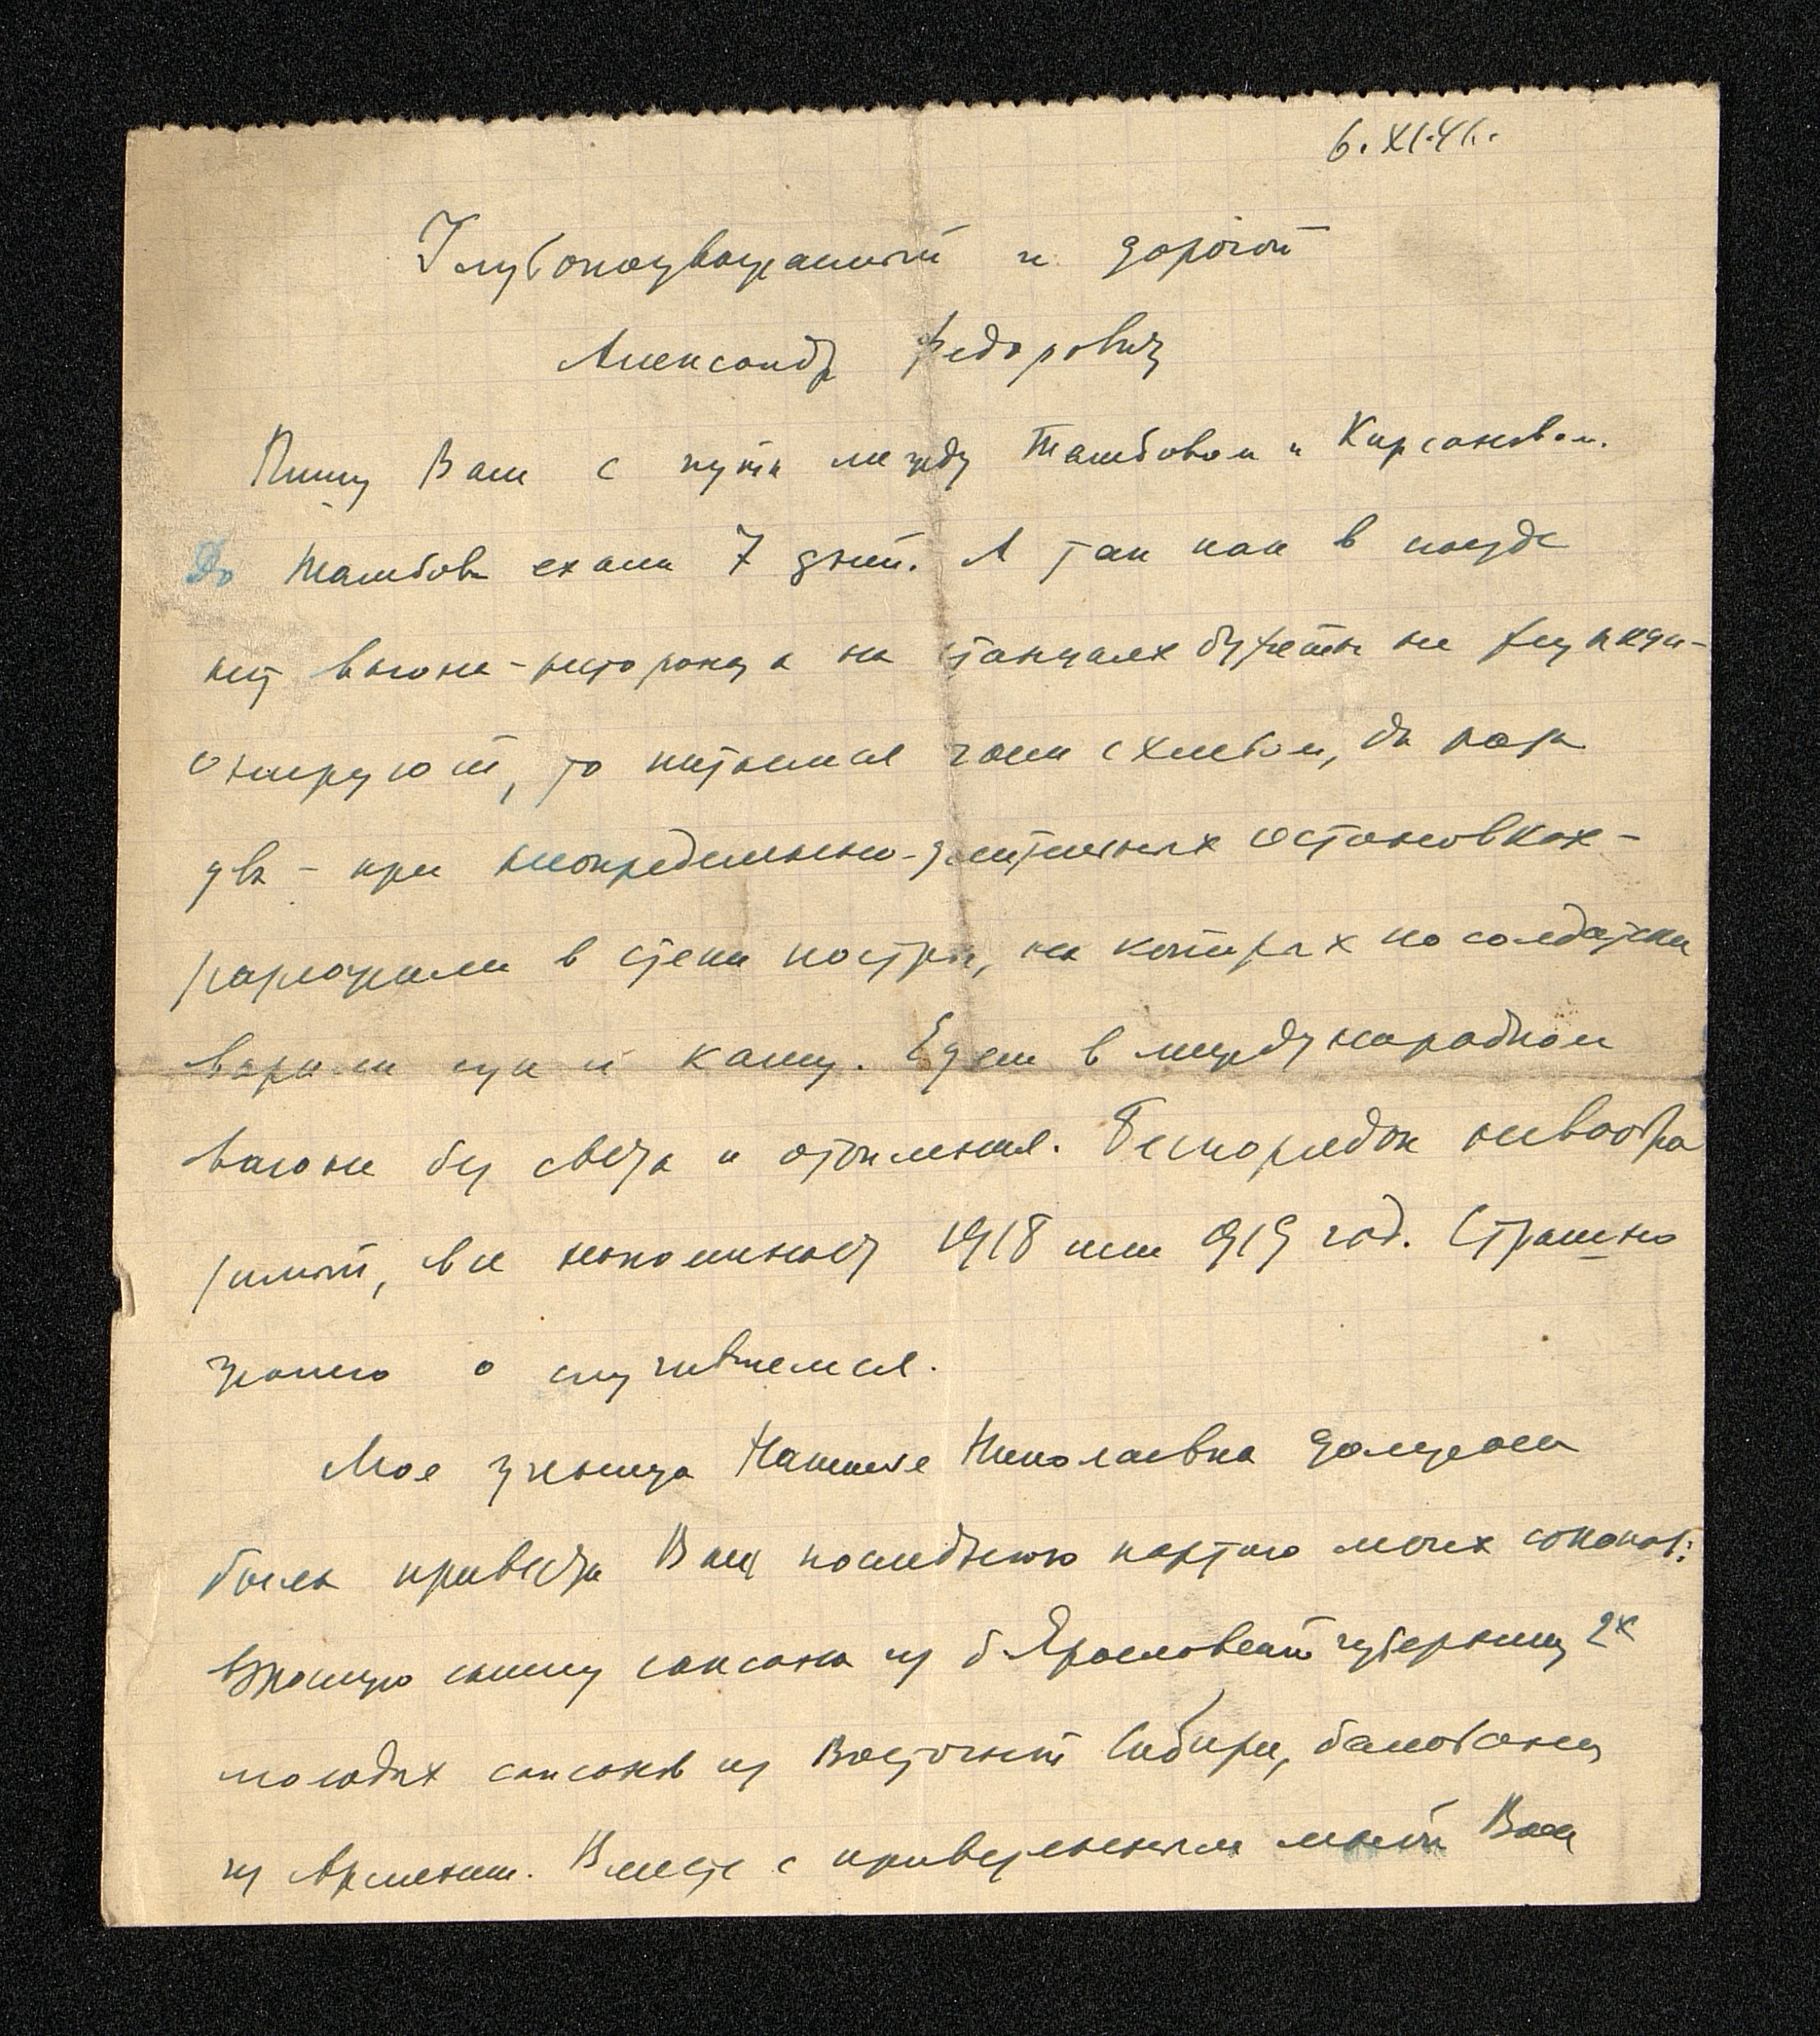 6.XI.41.
Глубокоуважаемый и дорогой
Александр Федорович
Пишу Вам с пути между Тамбовом и Кирсановом.
До Тамбова ехали 7 дней. А так как в поезде
нет вагона-ресторана, а на станциях буфеты не функци-
онируют, то питались чаем с хлебом, да раза
два - при неопределенно-длительных остановках -
разложили в степи костры, на которых по солдатски
варили суп и кашу. Едем в международном
вагоне без света и отопления. Беспорядок невообра
зимый, все напоминает 1918 или 1919 год. Страшно
жалею о случившемся.
Моя ученица Наталия Николаевна должна
была привезти Вам последнюю партию моих соколов:
взрослую самку сапсана из б. Ярославской губернии, 2х
молодых сапсанов из Восточной Сибири, балобана
из Армении. Вместе с привезенными мной Вам